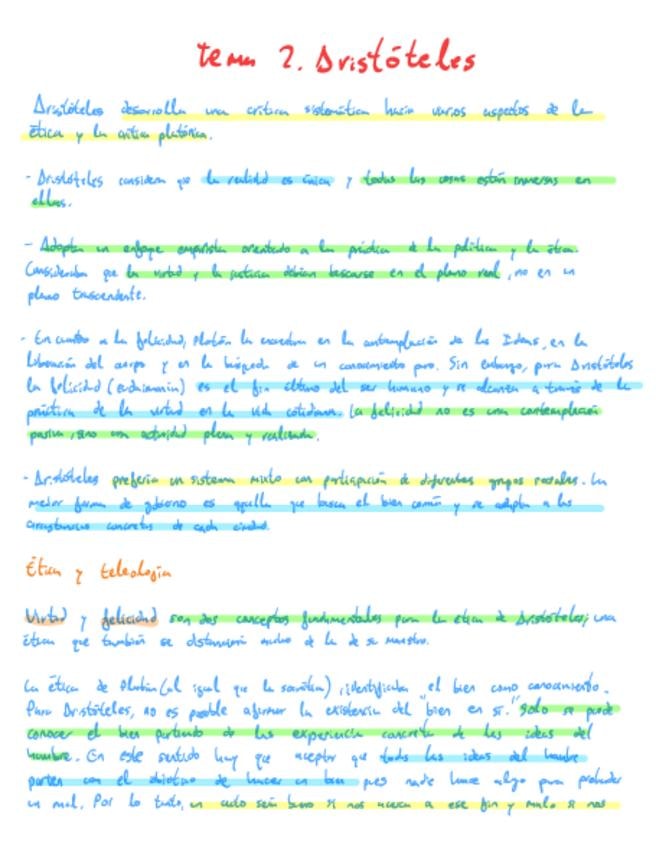 tema 2. Aristóteles
Aristóteles desarrolla una crítica sistemática hacia varios aspectos de la
ética y la crítica platónica.
- Aristóteles considera que la realidad es única y todas las cosas están inmersas en
ellas.
- Adopta un enfoque empirista orientado a la práctica de la política y la ética.
Consideraba que la virtud y la justicia debían buscarse en el plano real, no en un
plano trascendente.
- En cuanto a la felicidad, Platón la encontra en la contemplación de las Ideas, en la
liberación del cuerpo y en la búsqueda de un conocimiento puro. Sin embargo, para Aristóteles
la felicidad (eudaimonia) es el fin último del ser humano y se alcanza a través de la
práctica de la virtud en la vida cotidiana. La felicidad no es una contemplación
pasiva, sino una actividad plena y realizada.
- Aristóteles prefería un sistema mixto con participación de diferentes grupos sociales. La
mejor forma de gobierno es aquella que busca el bien común y se adapta a las
circunstancias concretas de cada ciudad.
Ética y teleología
Virtud y felicidad son dos conceptos fundamentales para la ética de Aristóteles; una
ética que también se distanciará mucho de la de su maestro.
La ética de Platón (al igual que la socrática), identificaba el bien como conocimiento.
Para Aristóteles, no es posible afirmar la existencia del "bien en sí". Solo se puede
conocer el bien partiendo de las experiencia concreta de las ideas del
hombre. En este sentido hay que aceptar que todas las ideas del hombre
parten con el objetivo de hacer un bien pues nadie hace algo para producir
un mal. Por lo tanto, un acto será bueno si nos acerca a ese fin y malo si nos